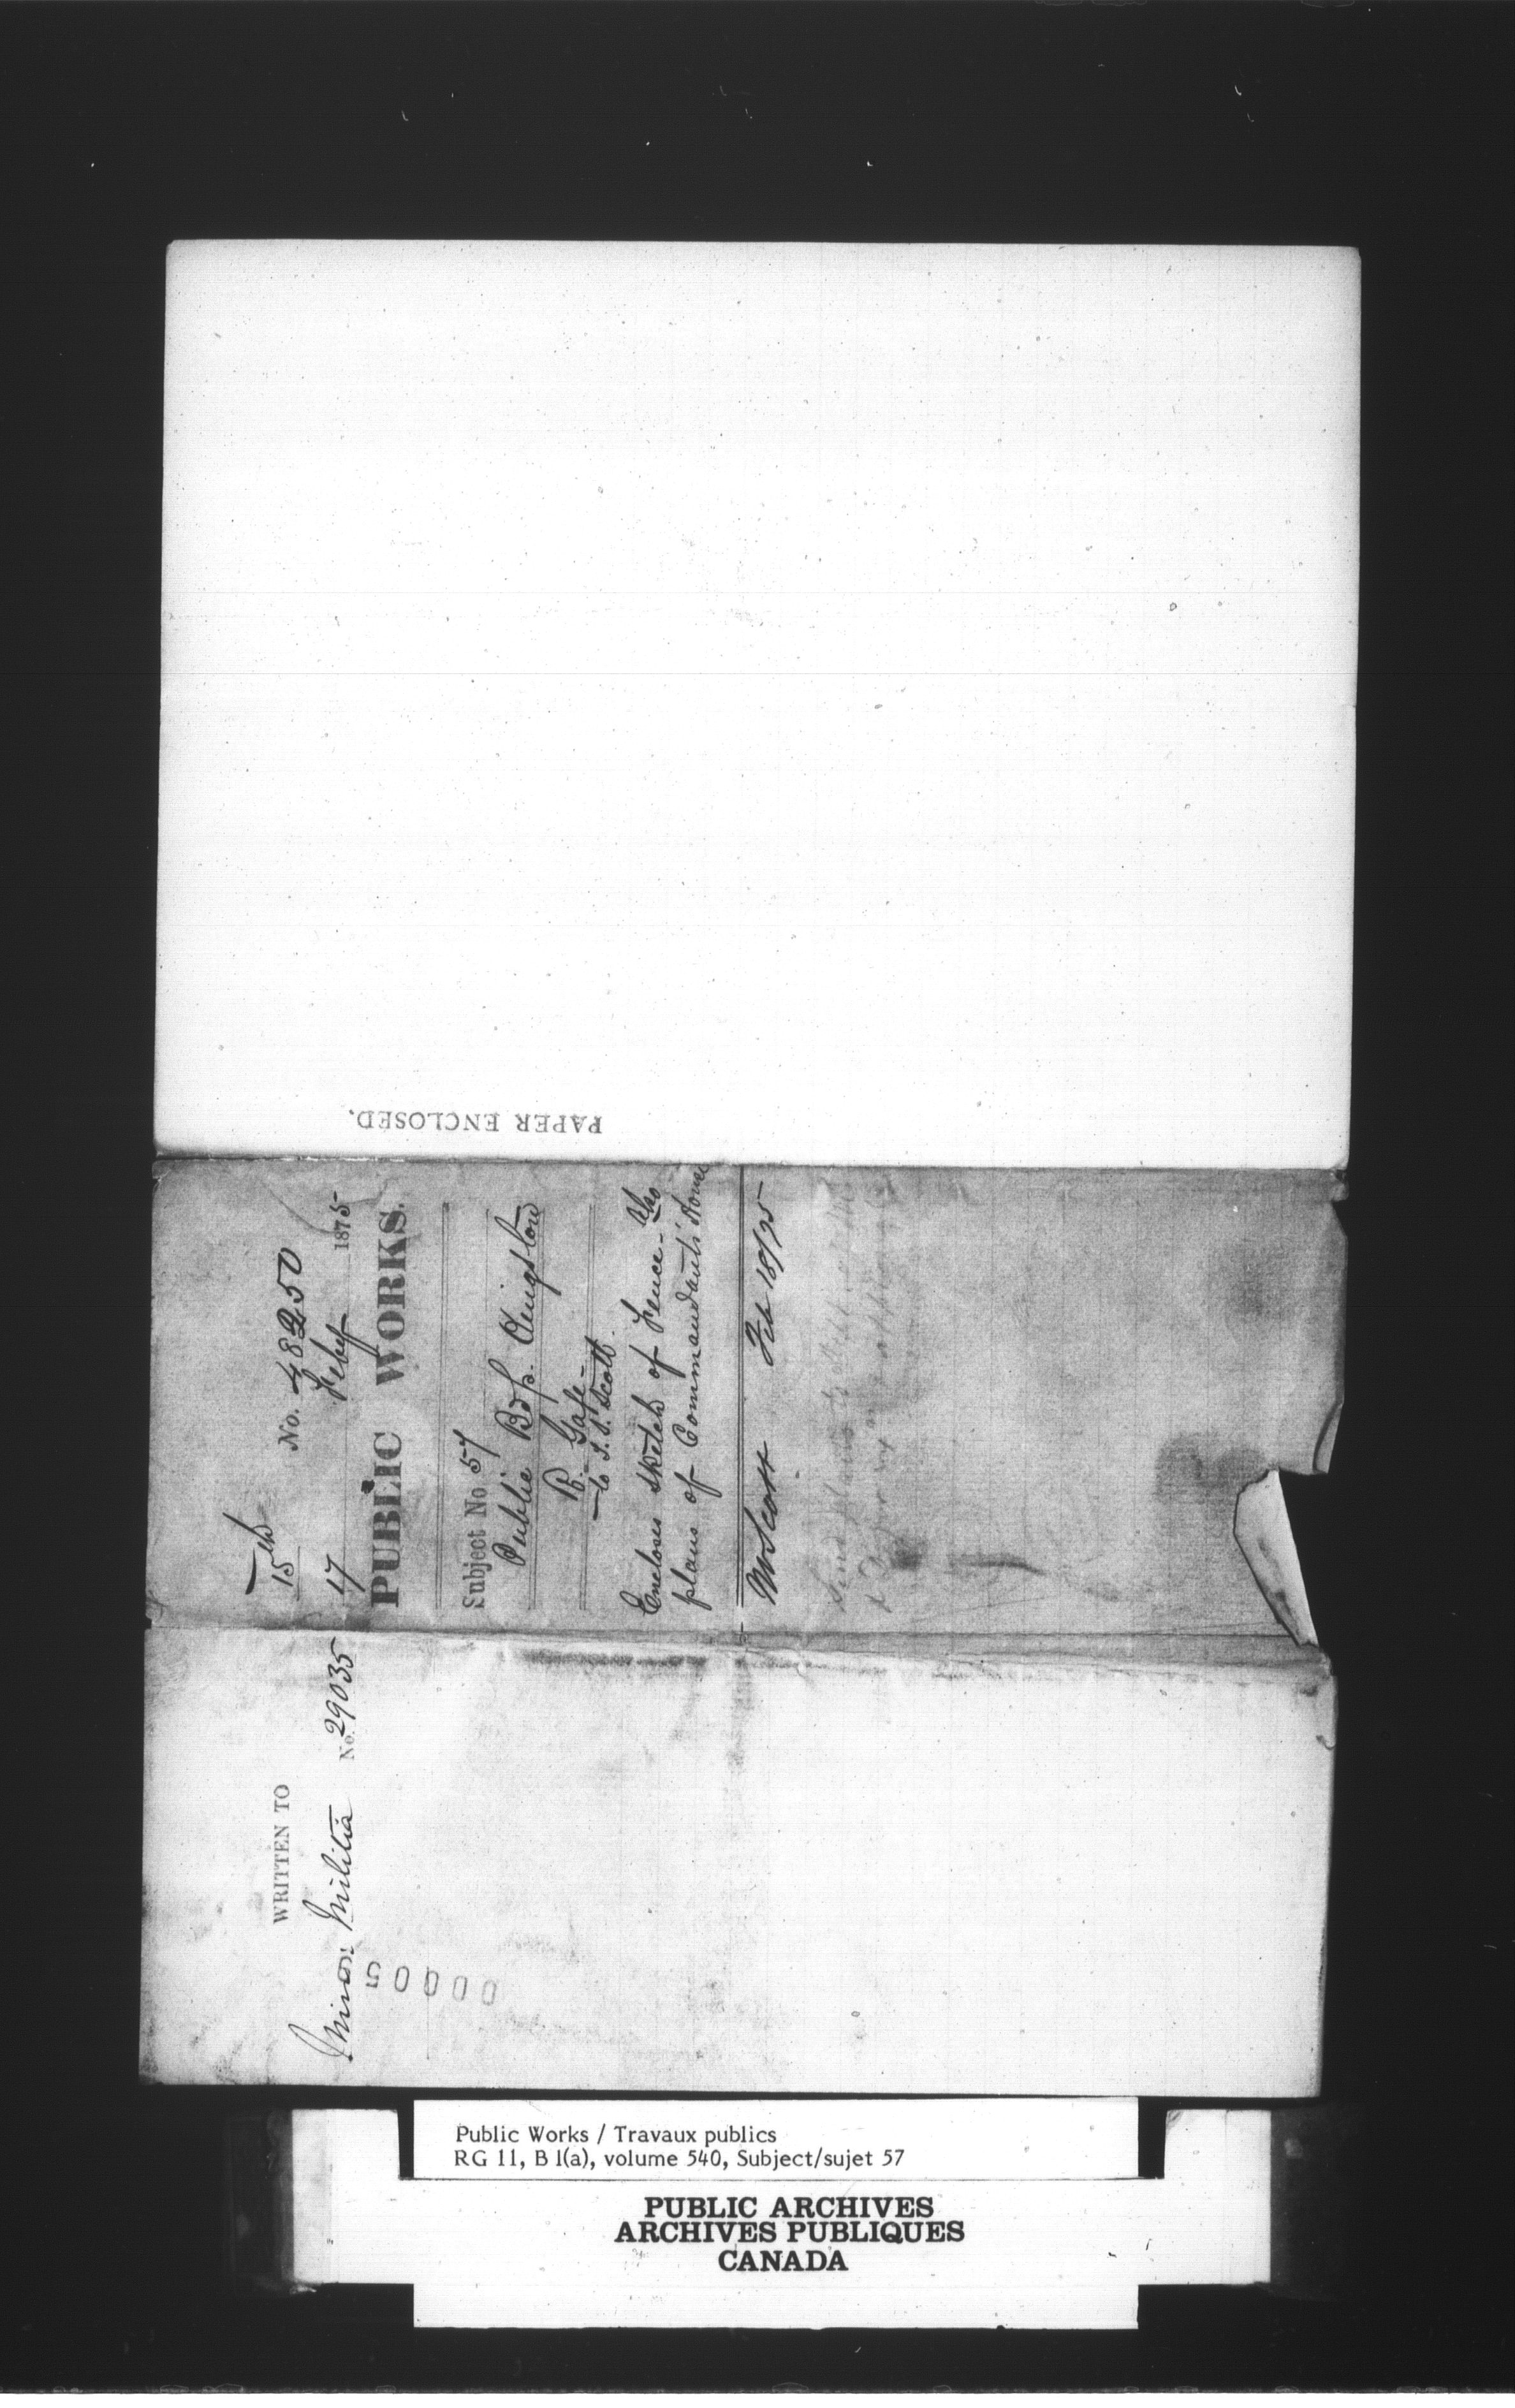 PAPER ENCLOSED.
15th
No. 48250
17 Feby 1875
PUBLIC WORKS.
Subject No 57
Public Bdgs. Kingston
R. Gage-
to T. S. Scott.
Encloses sketch of Fence- Also
plans of Commandant's House
Mr Scott Feb 18/75
Send plans to
WRITTEN TO
Minr: Militia No. 29035
00005
Public Works / Travaux publics
RG 11, B 1(a), volume 540, Subject/sujet 57
PUBLIC ARCHIVES
ARCHIVES PUBLIQUES
CANADA